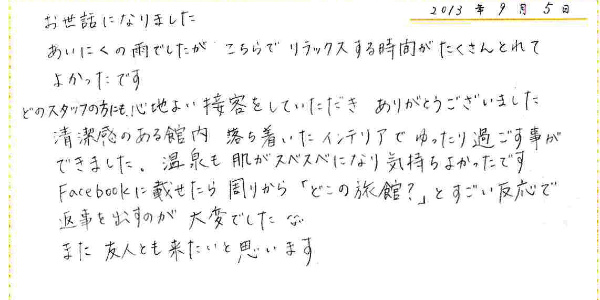 2013年9月5日
お世話になりました
あいにくの雨でしたが こちらで リラックスする時間がたくさんとれて
よかったです
どのスタッフの方にも、心地よい接客をしていただき ありがとうございました
清潔感のある館内 落ち着いたインテリアで ゆったり過ごす事が
できました。温泉も肌がスベスベになり気持ちよかったです
Facebookに載せたら周りから「どこの旅館?」とすごい反応で
返事を出すのが 大変でした
また 友人とも来たいと思います